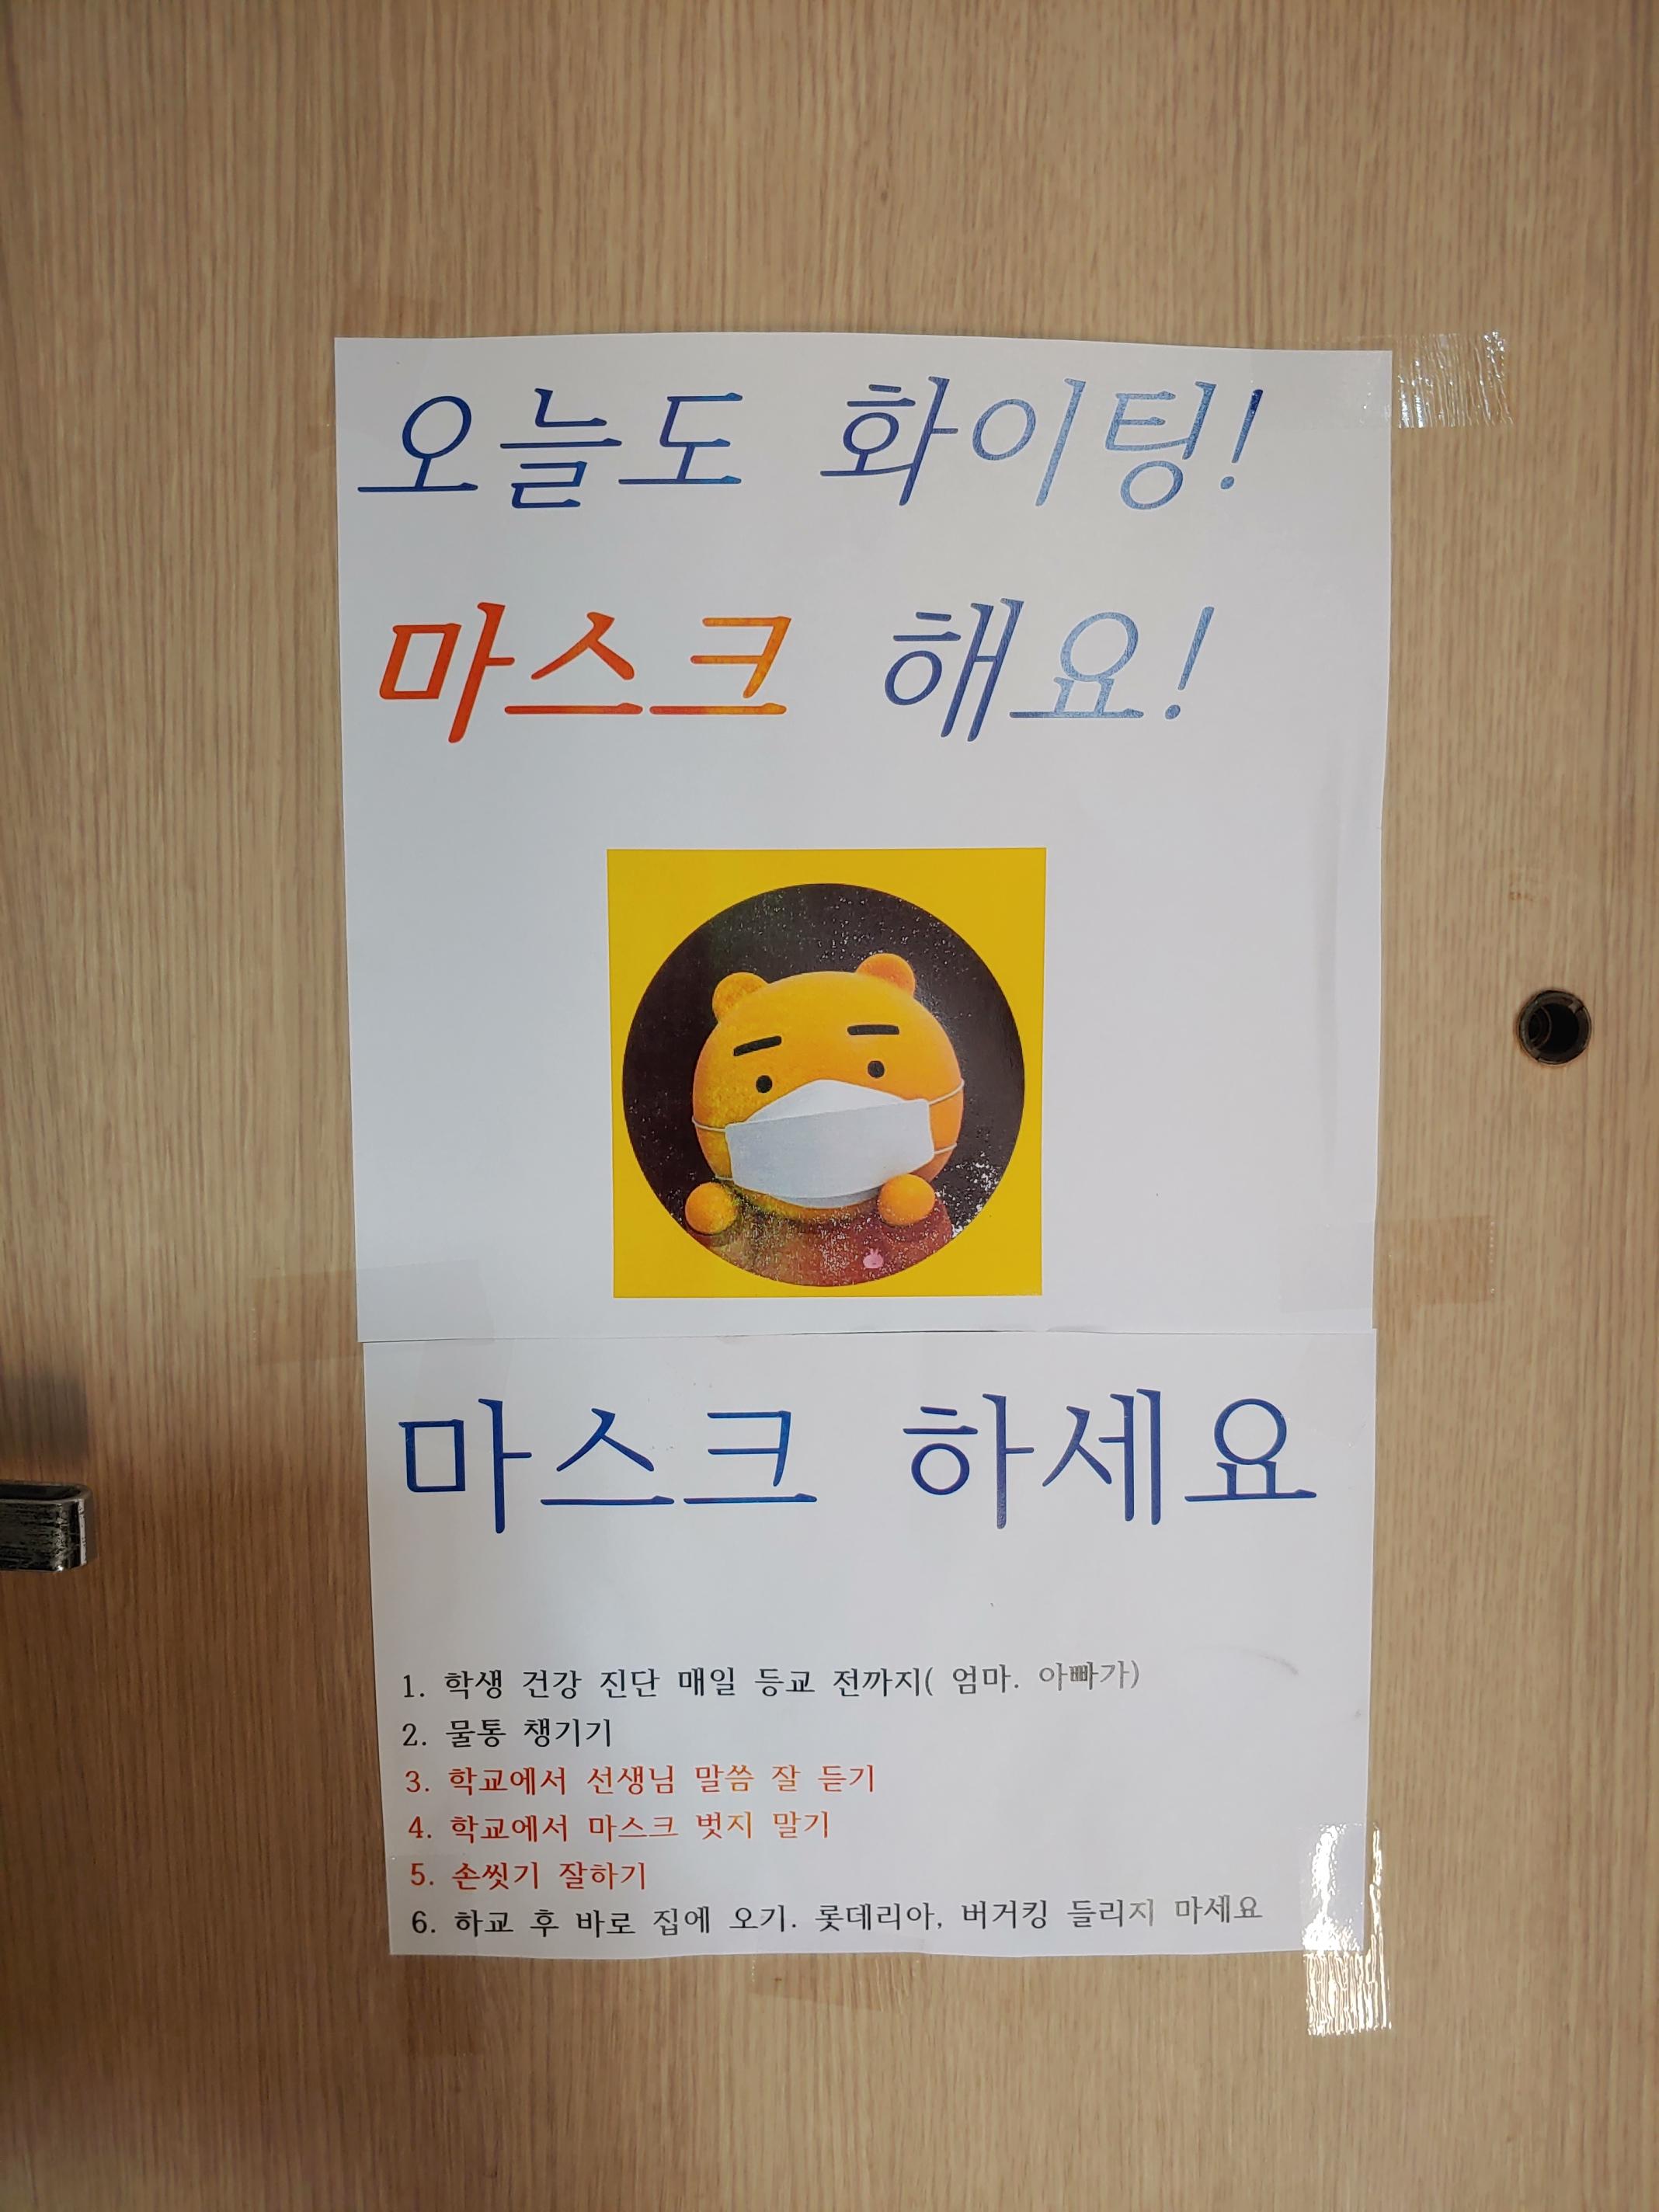 오늘도 화이팅!
마스크 해요!
마스크 하세요
1. 학생 건강 진단 매일 등교 전까지( 엄마. 아빠가)
2. 물통 챙기기
3. 학교에서 선생님 말씀 잘 듣기
4. 학교에서 마스크 벗지 말기
5. 손씻기 잘하기
6. 하교 후 바로 집에 오기. 롯데리아, 버거킹 들리지 마세요